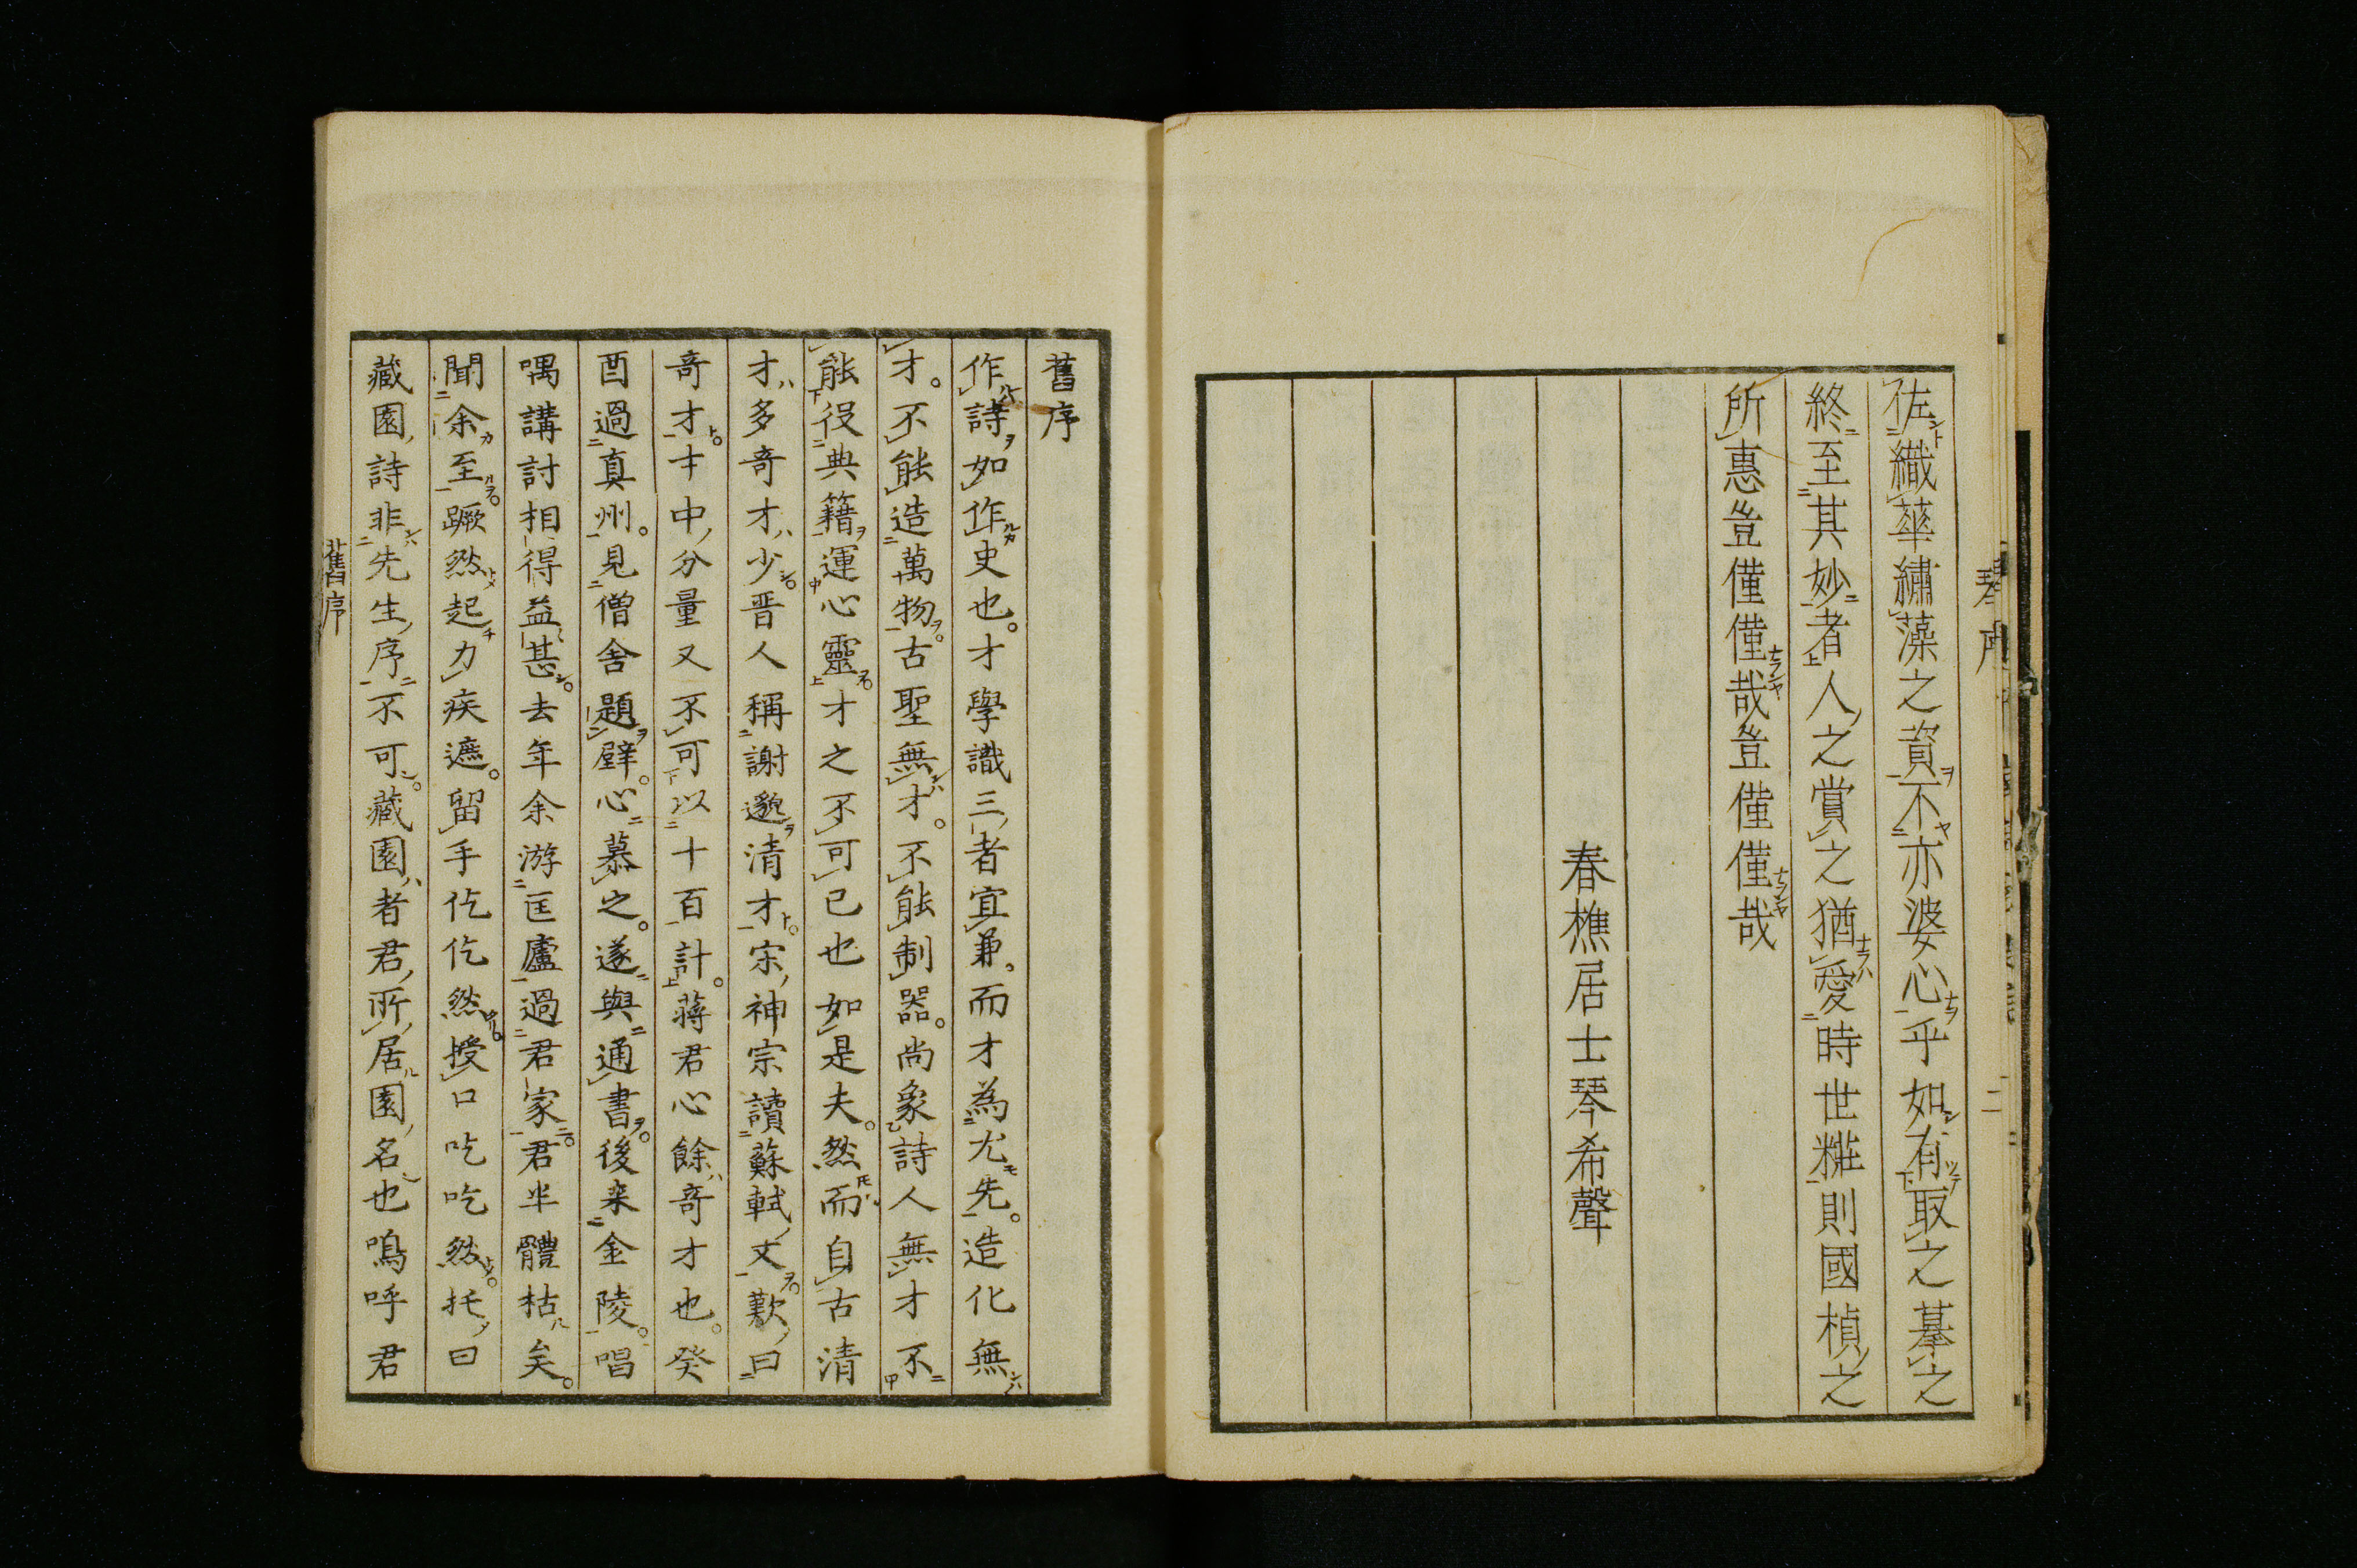 佐織華繡藻之資不亦婆心乎如有取之摹之
終至其妙者人之賞之猶愛時世糚則國楨之
所惠豈僅僅哉豈僅僅哉
春樵居士琴希聲
舊序
作詩如作史也才學識三者宜兼而才為尤先造化無
才不能造萬物古聖無才不能制器尚象詩人無才不
能役典籍運心靈才之不可已也如是夫然而自古清
才多奇才少晋人稱謝邈清才宋神宗讀蘇軾文歎曰
奇才才中分量又不可以十百計蔣君心餘奇才也癸
酉過真州見僧舍題壁心慕之遂與通書後来金陵唱
喁講討相得益甚去年余游匡廬過君家君半體枯矣
聞余至蹶然起力疾遮留手仡仡然授口吃吃然托曰
藏園詩非先生序不可藏園者君所居園名也嗚呼君
舊序